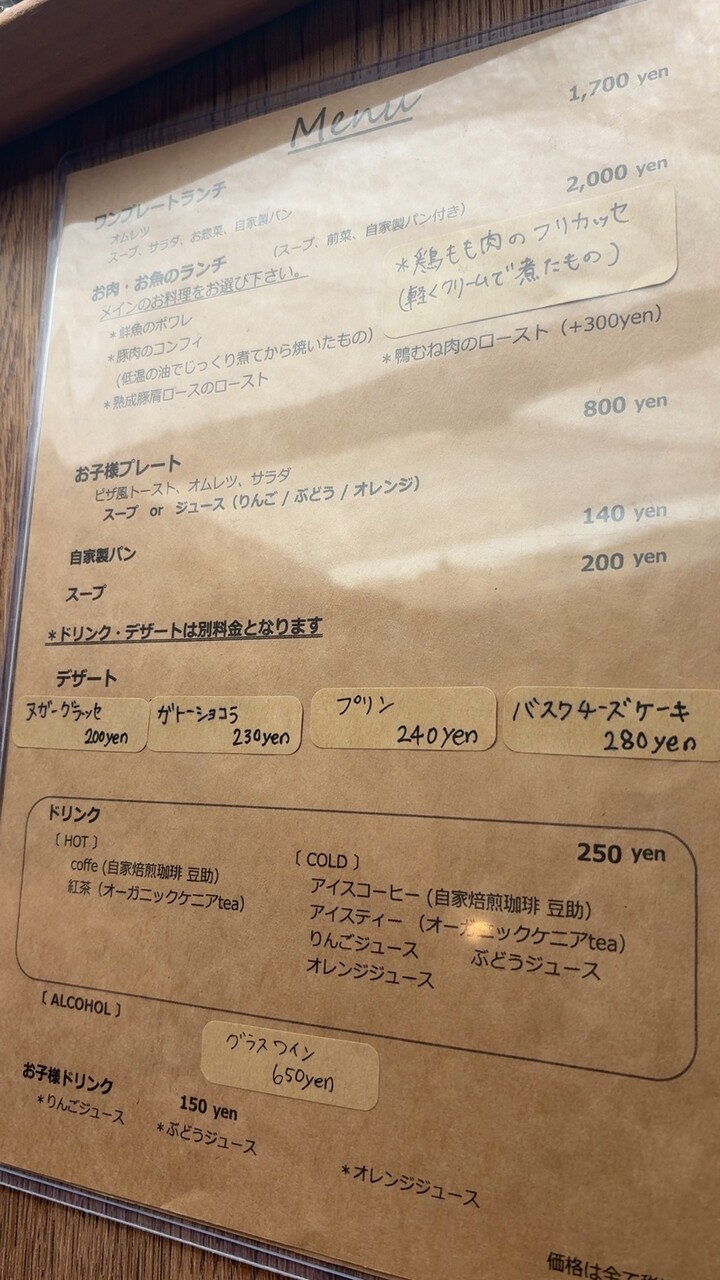 Menu
ワンプレートランチ 1,700 yen
オムレツ
スープ、サラダ、お惣菜、自家製パン
お肉・お魚のランチ (スープ、前菜、自家製パン付き) 2,000 yen
メインのお料理をお選び下さい。
*鮮魚のポワレ
*鶏もも肉のフリカッセ
(軽くクリームで煮たもの)
*豚肉のコンフィ
(低温の油でじっくり煮てから焼いたもの)
*熟成豚肩ロースのロースト
*鴨むね肉のロースト (+300yen)
お子様プレート 800 yen
ピザ風トースト、オムレツ、サラダ
スープ or ジュース (りんご / ぶどう / オレンジ)
自家製パン 140 yen
スープ 200 yen
*ドリンク・デザートは別料金となります
デザート
ヌガーグラッセ
200yen
ガトーショコラ
230yen
プリン
240yen
バスクチーズケーキ
280yen
ドリンク 250 yen
〔 HOT 〕
coffe (自家焙煎珈琲 豆助)
紅茶 (オーガニックケニアtea)
〔 COLD 〕
アイスコーヒー (自家焙煎珈琲 豆助)
アイスティー (オーガニックケニアtea)
りんごジュース ぶどうジュース
オレンジジュース
〔 ALCOHOL 〕
グラスワイン
650yen
お子様ドリンク 150 yen
*りんごジュース *ぶどうジュース *オレンジジュース
価格は全て